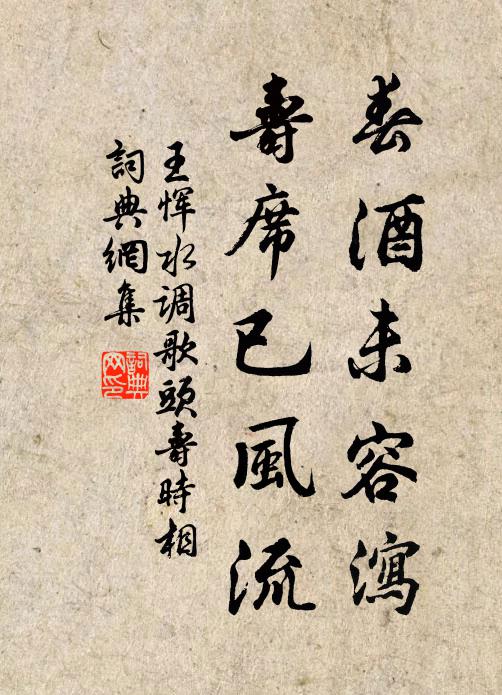 春酒未容瀉
壽席已風流
王恽水调歌頭壽時相
詞典網集
詞典网印